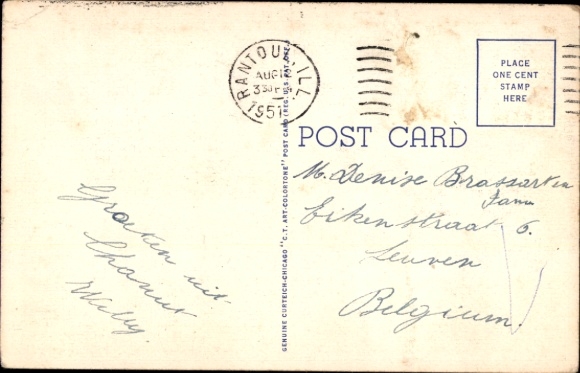 RANTOUL, ILL.
AUG
3 30 P
1951
PLACE
ONE CENT
STAMP
HERE
POST CARD
GENUINE CURTEICH-CHICAGO "C.T. ART-COLORTONE" POST CARD (REG. U.S. PAT. OFF.)
M. Denise Brassart en
Fam
Eikenstraat 6.
Leuven
Belgium.
Groeten uit
Chanut
Willy